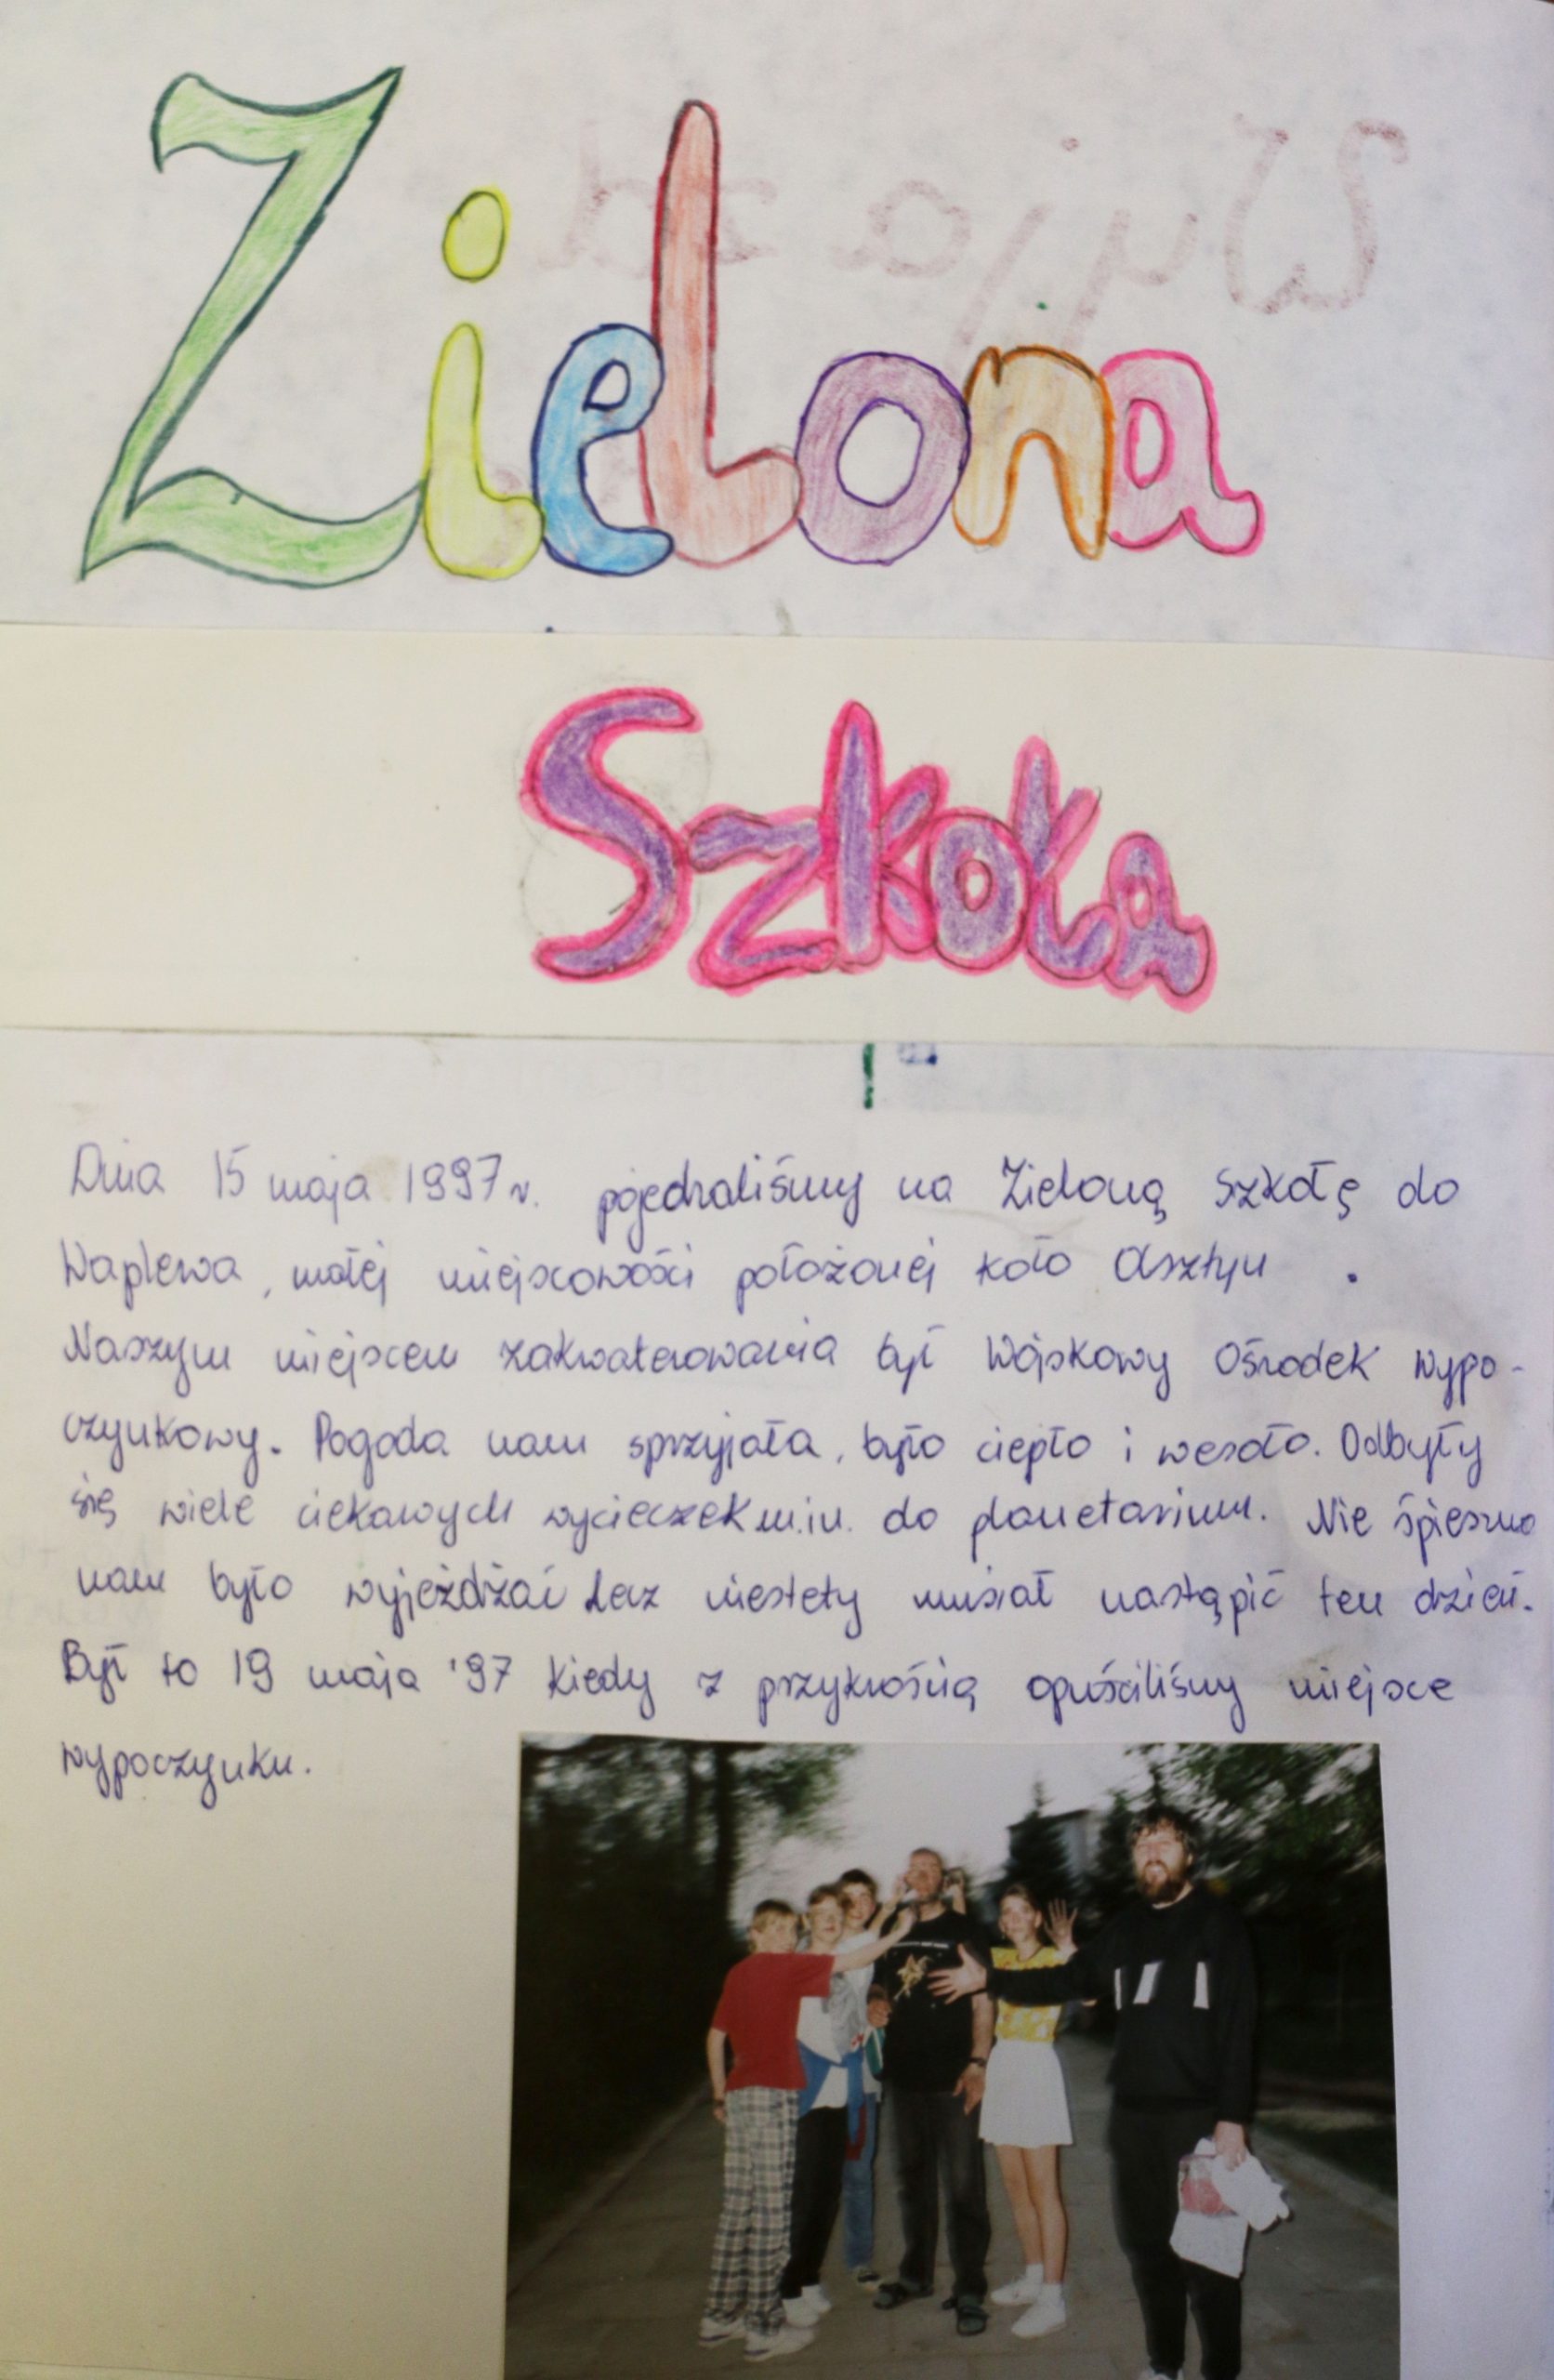 Zielona
Szkoła
Dnia 15 maja 1997 r. pojechaliśmy na Zieloną Szkołę do
Waplewa, małej miejscowości położonej koło Olsztyn .
Naszym miejscem zakwaterowania był Wojskowy Ośrodek wypo-
czynkowy. Pogoda nam sprzyjała, było ciepło i wesoło. Odbyły
się wiele ciekawych wycieczek m.in. do planetarium. Nie śpieszno
nam było wyjeżdżać lecz niestety musiał nastąpić ten dzień.
Był to 19 maja '97 kiedy z przykrością opuściliśmy miejsce
wypoczynku.